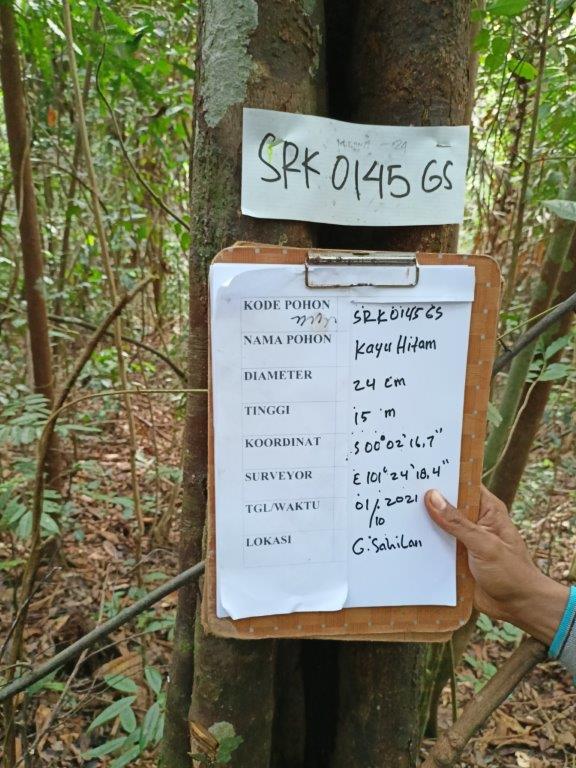 SRK 0145 GS
KODE POHON SRK0145 GS
NAMA POHON Kayu Hitam
DIAMETER 24 cm
TINGGI 15 m
KOORDINAT S 00°02'16,7"
SURVEYOR E 101°24'18.4"
TGL/WAKTU 01/10 2021
LOKASI G. Sahilan